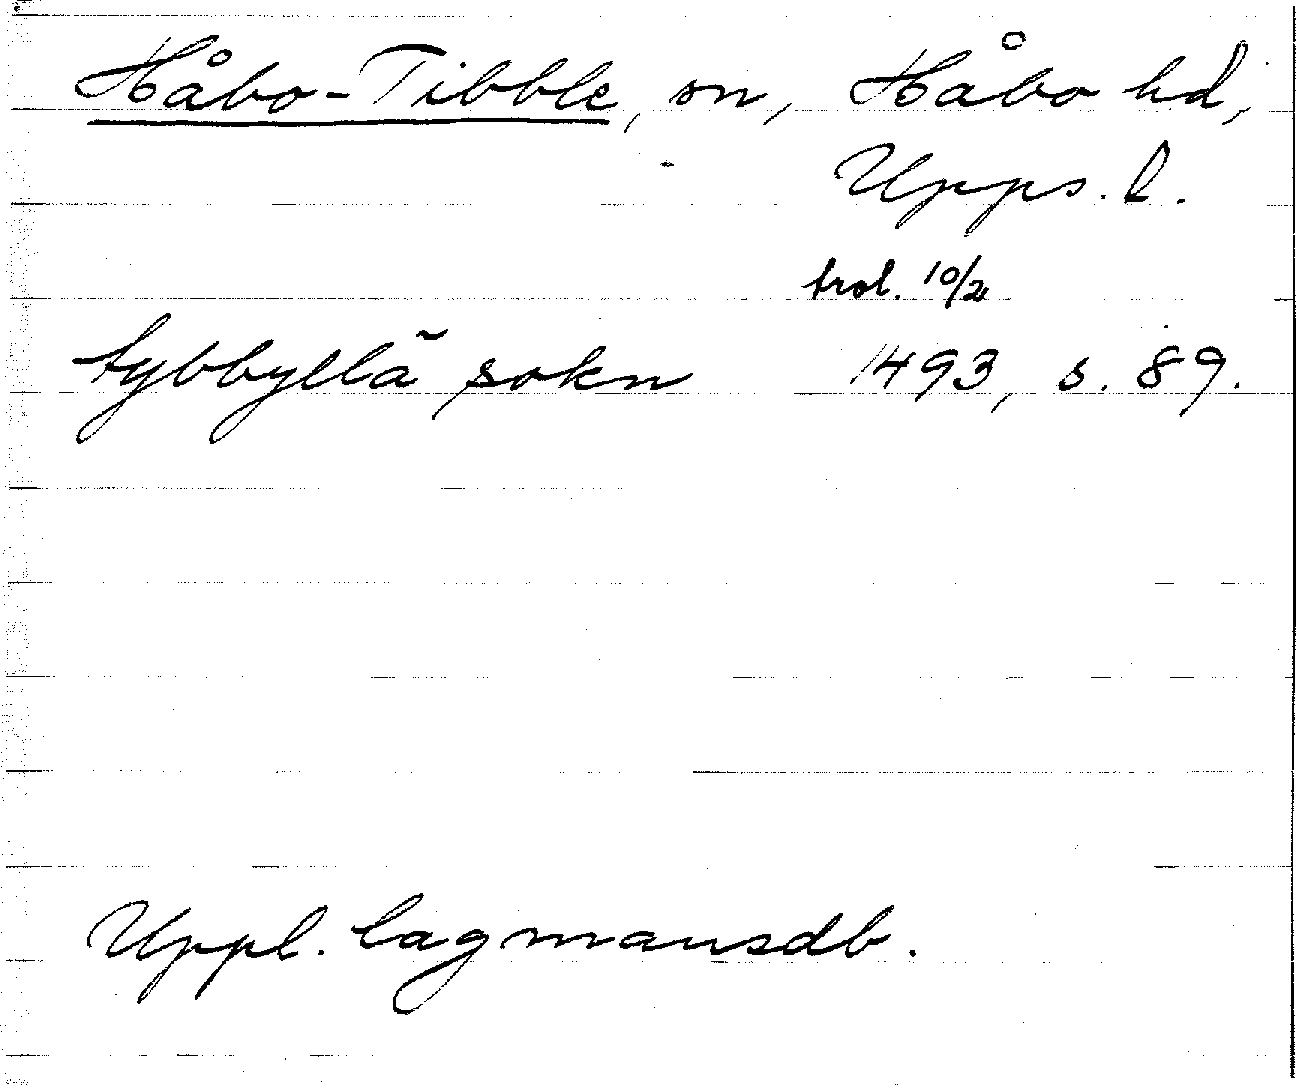 Håbo-Tibble, sn, Håbo hd,
Upps. l.
trol. 10/2
tybbyllä sokn 1493, s. 89.
Uppl. lagmansdb.